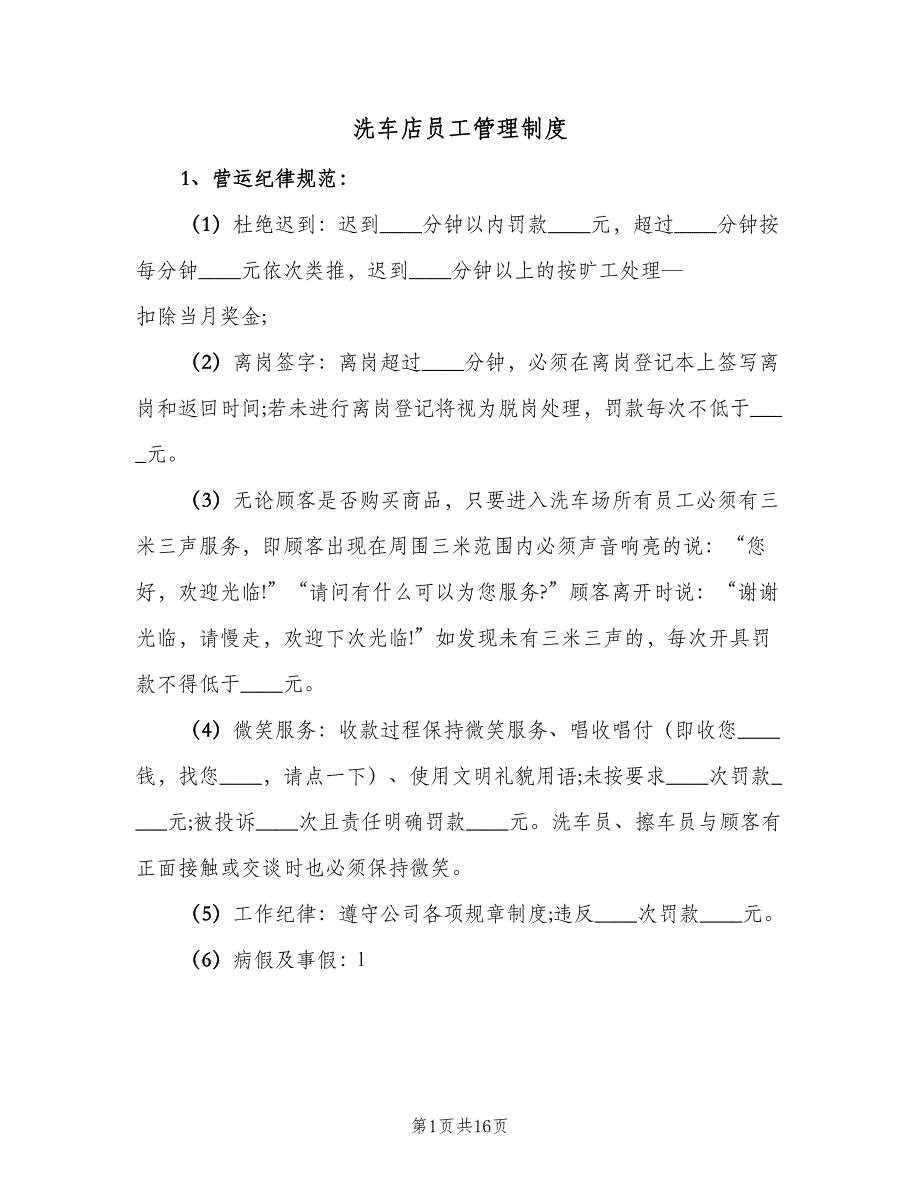 洗车店员工管理制度
1、营运纪律规范：
（1）杜绝迟到：迟到____分钟以内罚款____元，超过____分钟按
每分钟____元依次类推，迟到____分钟以上的按旷工处理—
扣除当月奖金;
（2）离岗签字：离岗超过____分钟，必须在离岗登记本上签写离
岗和返回时间;若未进行离岗登记将视为脱岗处理，罚款每次不低于___
_元。
（3）无论顾客是否购买商品，只要进入洗车场所有员工必须有三
米三声服务，即顾客出现在周围三米范围内必须声音响亮的说：“您
好，欢迎光临!”“请问有什么可以为您服务?”顾客离开时说：“谢谢
光临，请慢走，欢迎下次光临!”如发现未有三米三声的，每次开具罚
款不得低于____元。
（4）微笑服务：收款过程保持微笑服务、唱收唱付（即收您____
钱，找您____，请点一下）、使用文明礼貌用语;未按要求____次罚款_
___元;被投诉____次且责任明确罚款____元。洗车员、擦车员与顾客有
正面接触或交谈时也必须保持微笑。
（5）工作纪律：遵守公司各项规章制度;违反____次罚款____元。
（6）病假及事假：l
第1页共16页